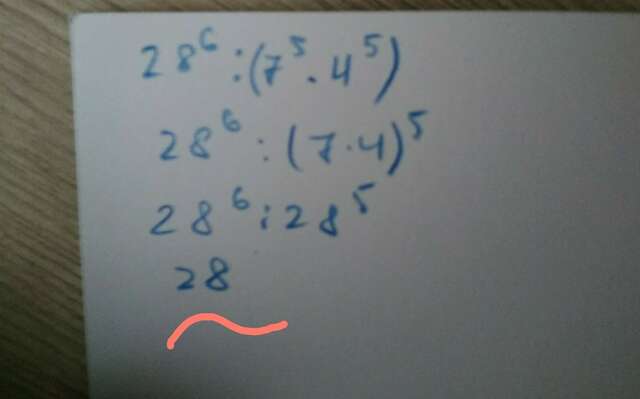 28⁶:(7⁵·4⁵)
28⁶:(7·4)⁵
28⁶:28⁵
28